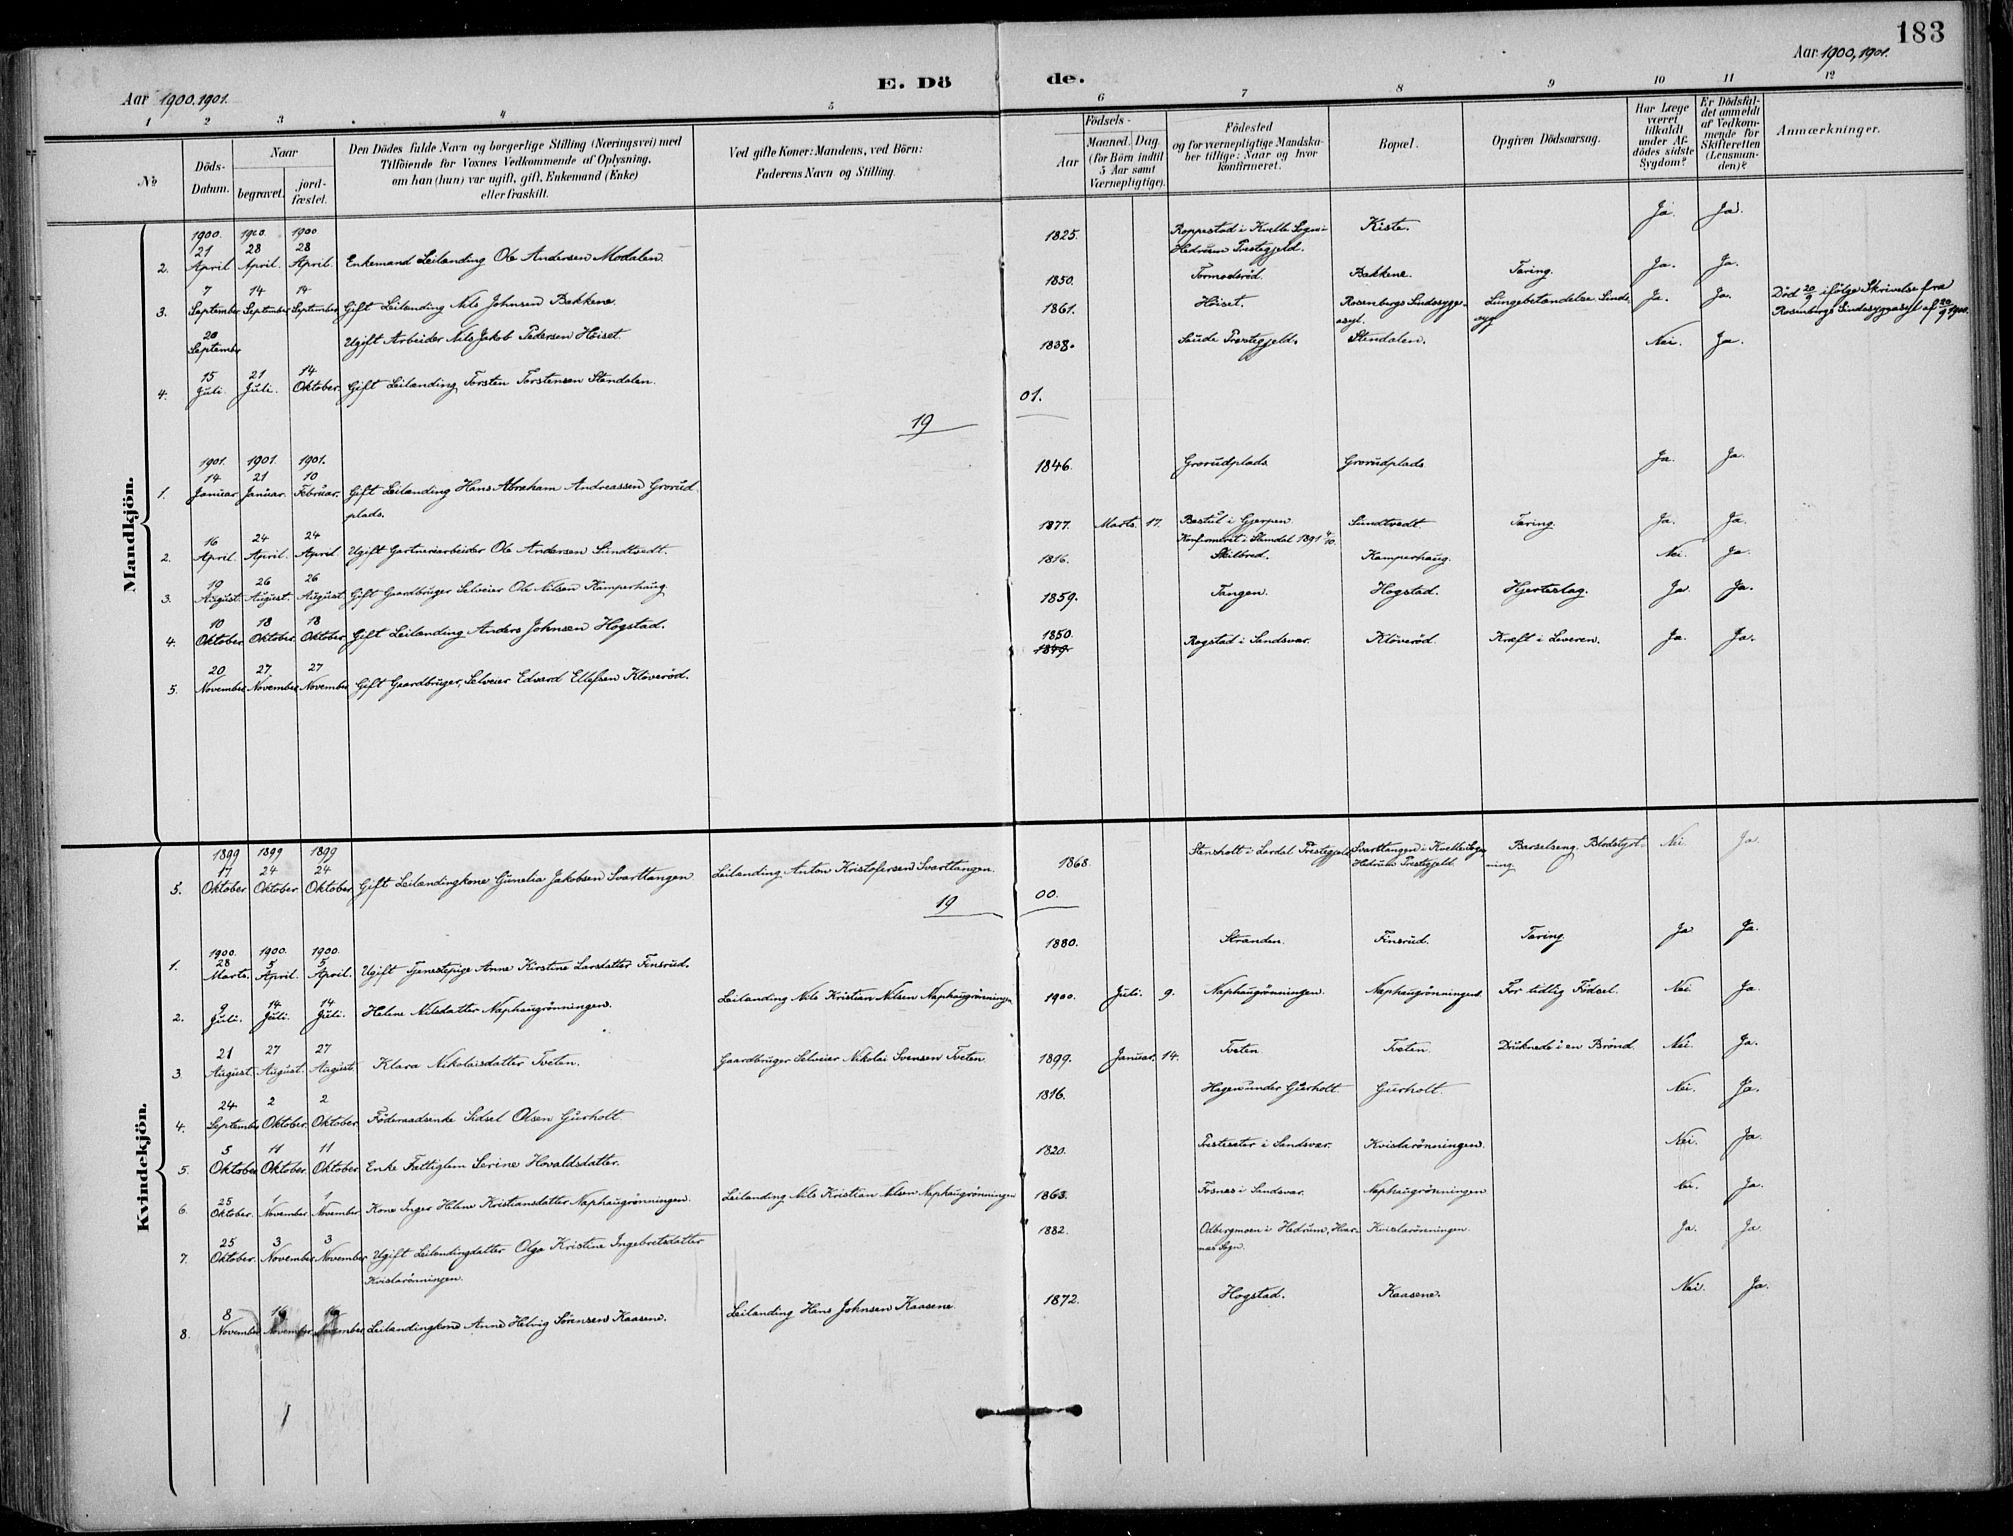 183
Aar 1900, 1901.
E. Döde.
Aar 1900, 1901.
1 2 3 4 5 6 7 8 9 10 11 12
No
Döds-Datum.
Naar
begravet.
jord-fæstet.
Den Dödes fulde Navn og borgerlige Stilling (Næringsvei) med
Tilföiende for Voxnes Vedkommende af Oplysning,
om han (hun) var ugift, gift, Enkemand (Enke)
eller fraskilt.
Ved gifte Koner: Mandens, ved Börn:
Faderens Navn og Stilling.
Födsels-
Aar
Maaned. Dag.
(for Börn indtil
5 Aar samt
Værnepligtige).
Födested
og for værnepligtige Mandska-
ber tillige: Naar og hvor
konfirmeret.
Bopæl.
Opgiven Dödsaarsag.
Har Læge
været
tilkaldt
under Af-
dödes sidste
Sygdom?
Er Dödsfal-
det anmeldt
af Vedkom-
mende for
Skifteretten
(Lensman-
den)?
Anmærkninger.
Mandkjön.
1900. 1900. 1900
2. 21 April 28 April. 28 April. Enkemand Leilænding Ole Andersen Modalen. 1825. Roppestad i Kvelle Sogn i
Hedrum Prestegjeld. Kiste. Ja. Ja.
3. 7 September 14 September 14 September Gift Leilænding Nils Johnsen Bakkene. 1850. Tormodsröd. Bakkene. Tæring. Ja. Ja.
20 September Ugift Arbeider Nils Jakob Pedersen Höiset. 1861. Höiset. Rosenbergs Sindssyge-
asyl. Lungebetændelse Sinds
syg Ja. Ja. Död 20/9 ifölge Skrivelse fra
Rosenbergs Sindssygeasyl af 20/9 1900.
4. 15 Juli. 21 Juli. 14 Oktober. Gift Leilænding Torsten Torstensen Stendalen. 1838. Saude Prestegjeld. Stendalen. Nei. Ja.
1901.
1901. 1901. 1901.
1. 14 Januar. 21 Januar. 10 Februar. Gift Leilænding Hans Abraham Andreassen Grorud-
plads. 1846. Grorudplads Grorudplads Ja. Ja.
2. 16 April. 24 April. 24 April. Ugift Gartnerarbeider Ole Andersen Sundtvedt. 1877. Marts. 17. Bestul i Gjerpen.
Konfirmeret i Slemdal 1891 Sundtvedt. Tæring. Ja. Ja.
3. 19 August. 26 August. 26 August. Gift Gaardbruger Selveier Ole Nilsen Kamperhaug. 1816. Skilbred. Kamperhaug. Nei. Ja.
4. 10 Oktober. 18 Oktober. 18 Oktober. Gift Leilænding Anders Johnsen Hogstad. 1859. Tangen. Hogstad. Hjerteslag. Ja. Ja.
5. 20 November. 27 November. 27 November. Gift Gaardbruger, Selveier Edvard Ellefsen Klöveröd. 1850.
1849. Rogstad i Sandsvær. Klöveröd. Kræft i Leveren. Ja. Ja.
Kvindekjön.
1899 1899 1899
5. 17 Oktober 24 Oktober. 24 Oktober. Gift Leilændingkone Gunelia Jakobsen Svarttangen Leilænding Anton Kristofersen Svarttangen. 1868. Stensholt i Lardal Prestegjeld. Svarttangen i Kvelle Sogn
Hedrum Prestegjeld. Barselseng. Blodstyrt-
ning. Nei. Ja.
1900.
1900. 1900. 1900.
1. 28 Marts. 5 April. 5 April. Ugift Tjenestepige Anne Kirstine Larsdatter Finsrud. 1880. Stranden. Finsrud. Tæring. Ja Ja.
2. 9 Juli. 14 Juli. 14 Juli. Helene Nilsdatter Naphaugrönningen. Leilænding Nils Kristian Nilsen Naphaugrönningen 1900. Juli. 9. Naphaugrönningen. Naphaugrönningen. For tidlig Födsel. Nei Ja.
3. 21 August. 27 August. 27 August. Klara Nikolaisdatter Tveten. Gaardbruger Selveier Nikolai Svensen Tveten. 1899. Januar. 14. Tveten Tveten. Druknede i en Brönd. Nei. Ja.
4. 24 September 2 Oktober. 2 Oktober. Föderaadsenke Sidsel Olsen Gurholt 1816. Hagen under Gurholt. Gurholt. Nei. Ja.
5. 5 Oktober 11 Oktober. 11 Oktober. Enke Fattiglem Serine Hovaldsdatter. 1820. i Sandsvær. Kvislarönningen. Nei. Ja.
6. 25 Oktober. 1 November 1 November Kone Inger Helene Kristiansdatter Naphaugrönningen. Leilænding Nils Kristian Nilsen Naphaugrönningen 1863. Fosnes i Sandsvær. Naphaugrönningen Nei. Ja.
7. 25 Oktober. 3 November. 3 November. Ugift Leilændingdatter Olga Kristine Ingebretsdatter
Kvislarönningen. 1882. Odbergmoen i Hedrum, Hvar-
nes Sogn. Kvislarönningen. Ja. Ja
8. 8 November 16 November. 16 November. Leilændingkone Anne Helvig Sörensen Kaasene. Leilænding Hans Johnsen Kaasene. 1872. Hogstad. Kaasene. Nei. Ja.